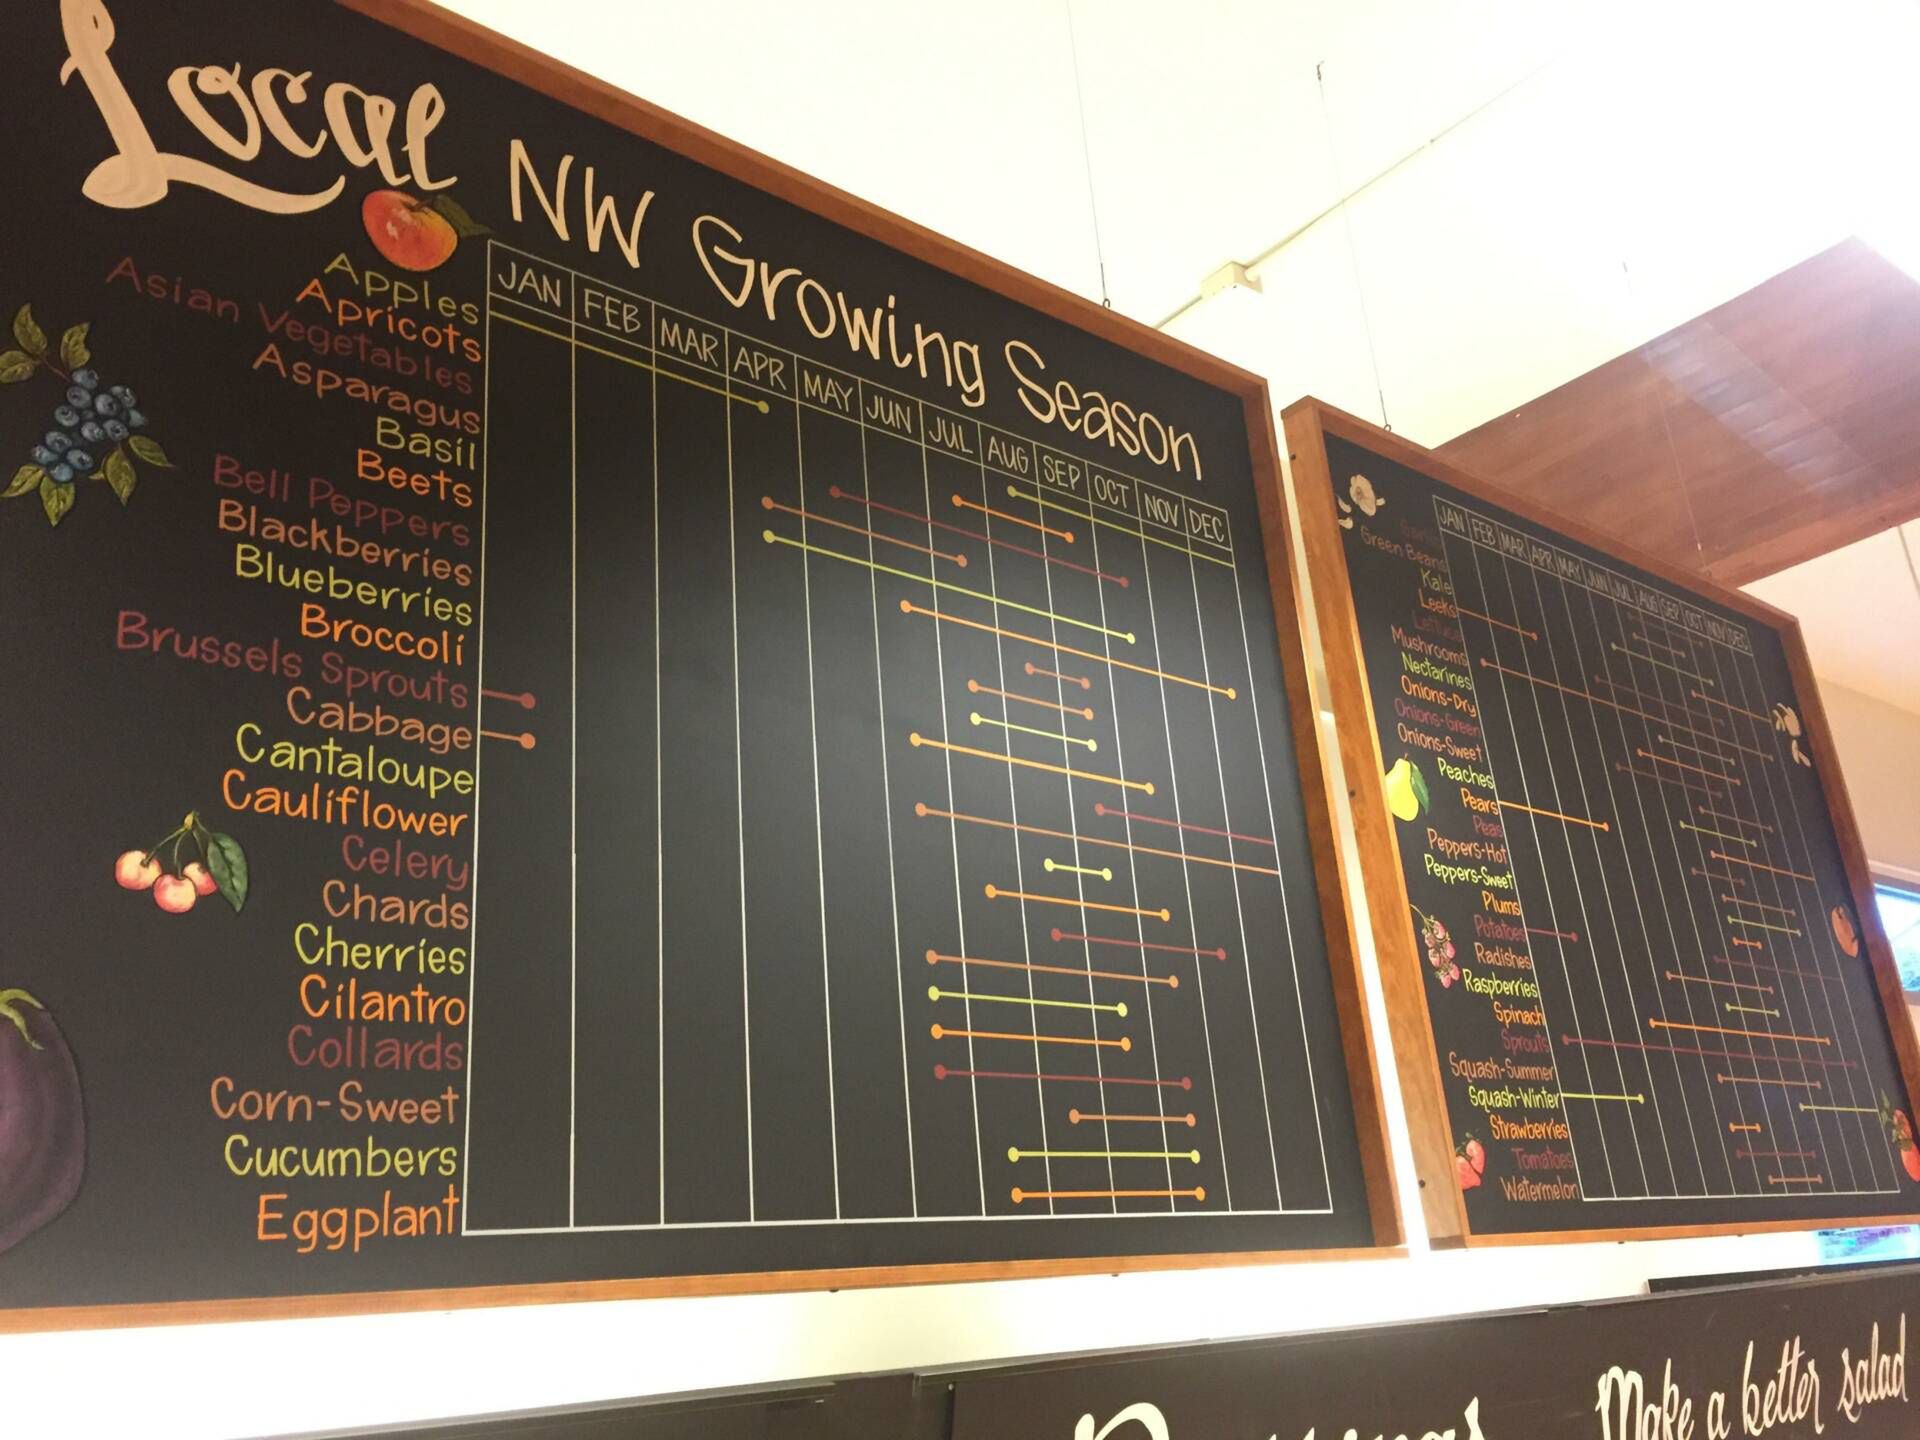 Local NW Growing Season
JAN FEB MAR APR MAY JUN JUL AUG SEP OCT NOV DEC
Apples
Apricots
Asian Vegetables
Asparagus
Basil
Beets
Bell Peppers
Blackberries
Blueberries
Broccoli
Brussels Sprouts
Cabbage
Cantaloupe
Cauliflower
Celery
Chards
Cherries
Cilantro
Collards
Corn-Sweet
Cucumbers
Eggplant
JAN FEB MAR APR MAY JUN JUL AUG SEP OCT NOV DEC
Green Beans
Kale
Leeks
Lettuce
Mushrooms
Nectarines
Onions-Dry
Onions-Green
Onions-Sweet
Peaches
Pears
Peas
Peppers-Hot
Peppers-Sweet
Plums
Potatoes
Radishes
Raspberries
Spinach
Sprouts
Squash-Summer
Squash-Winter
Strawberries
Tomatoes
Watermelon
Make a better salad